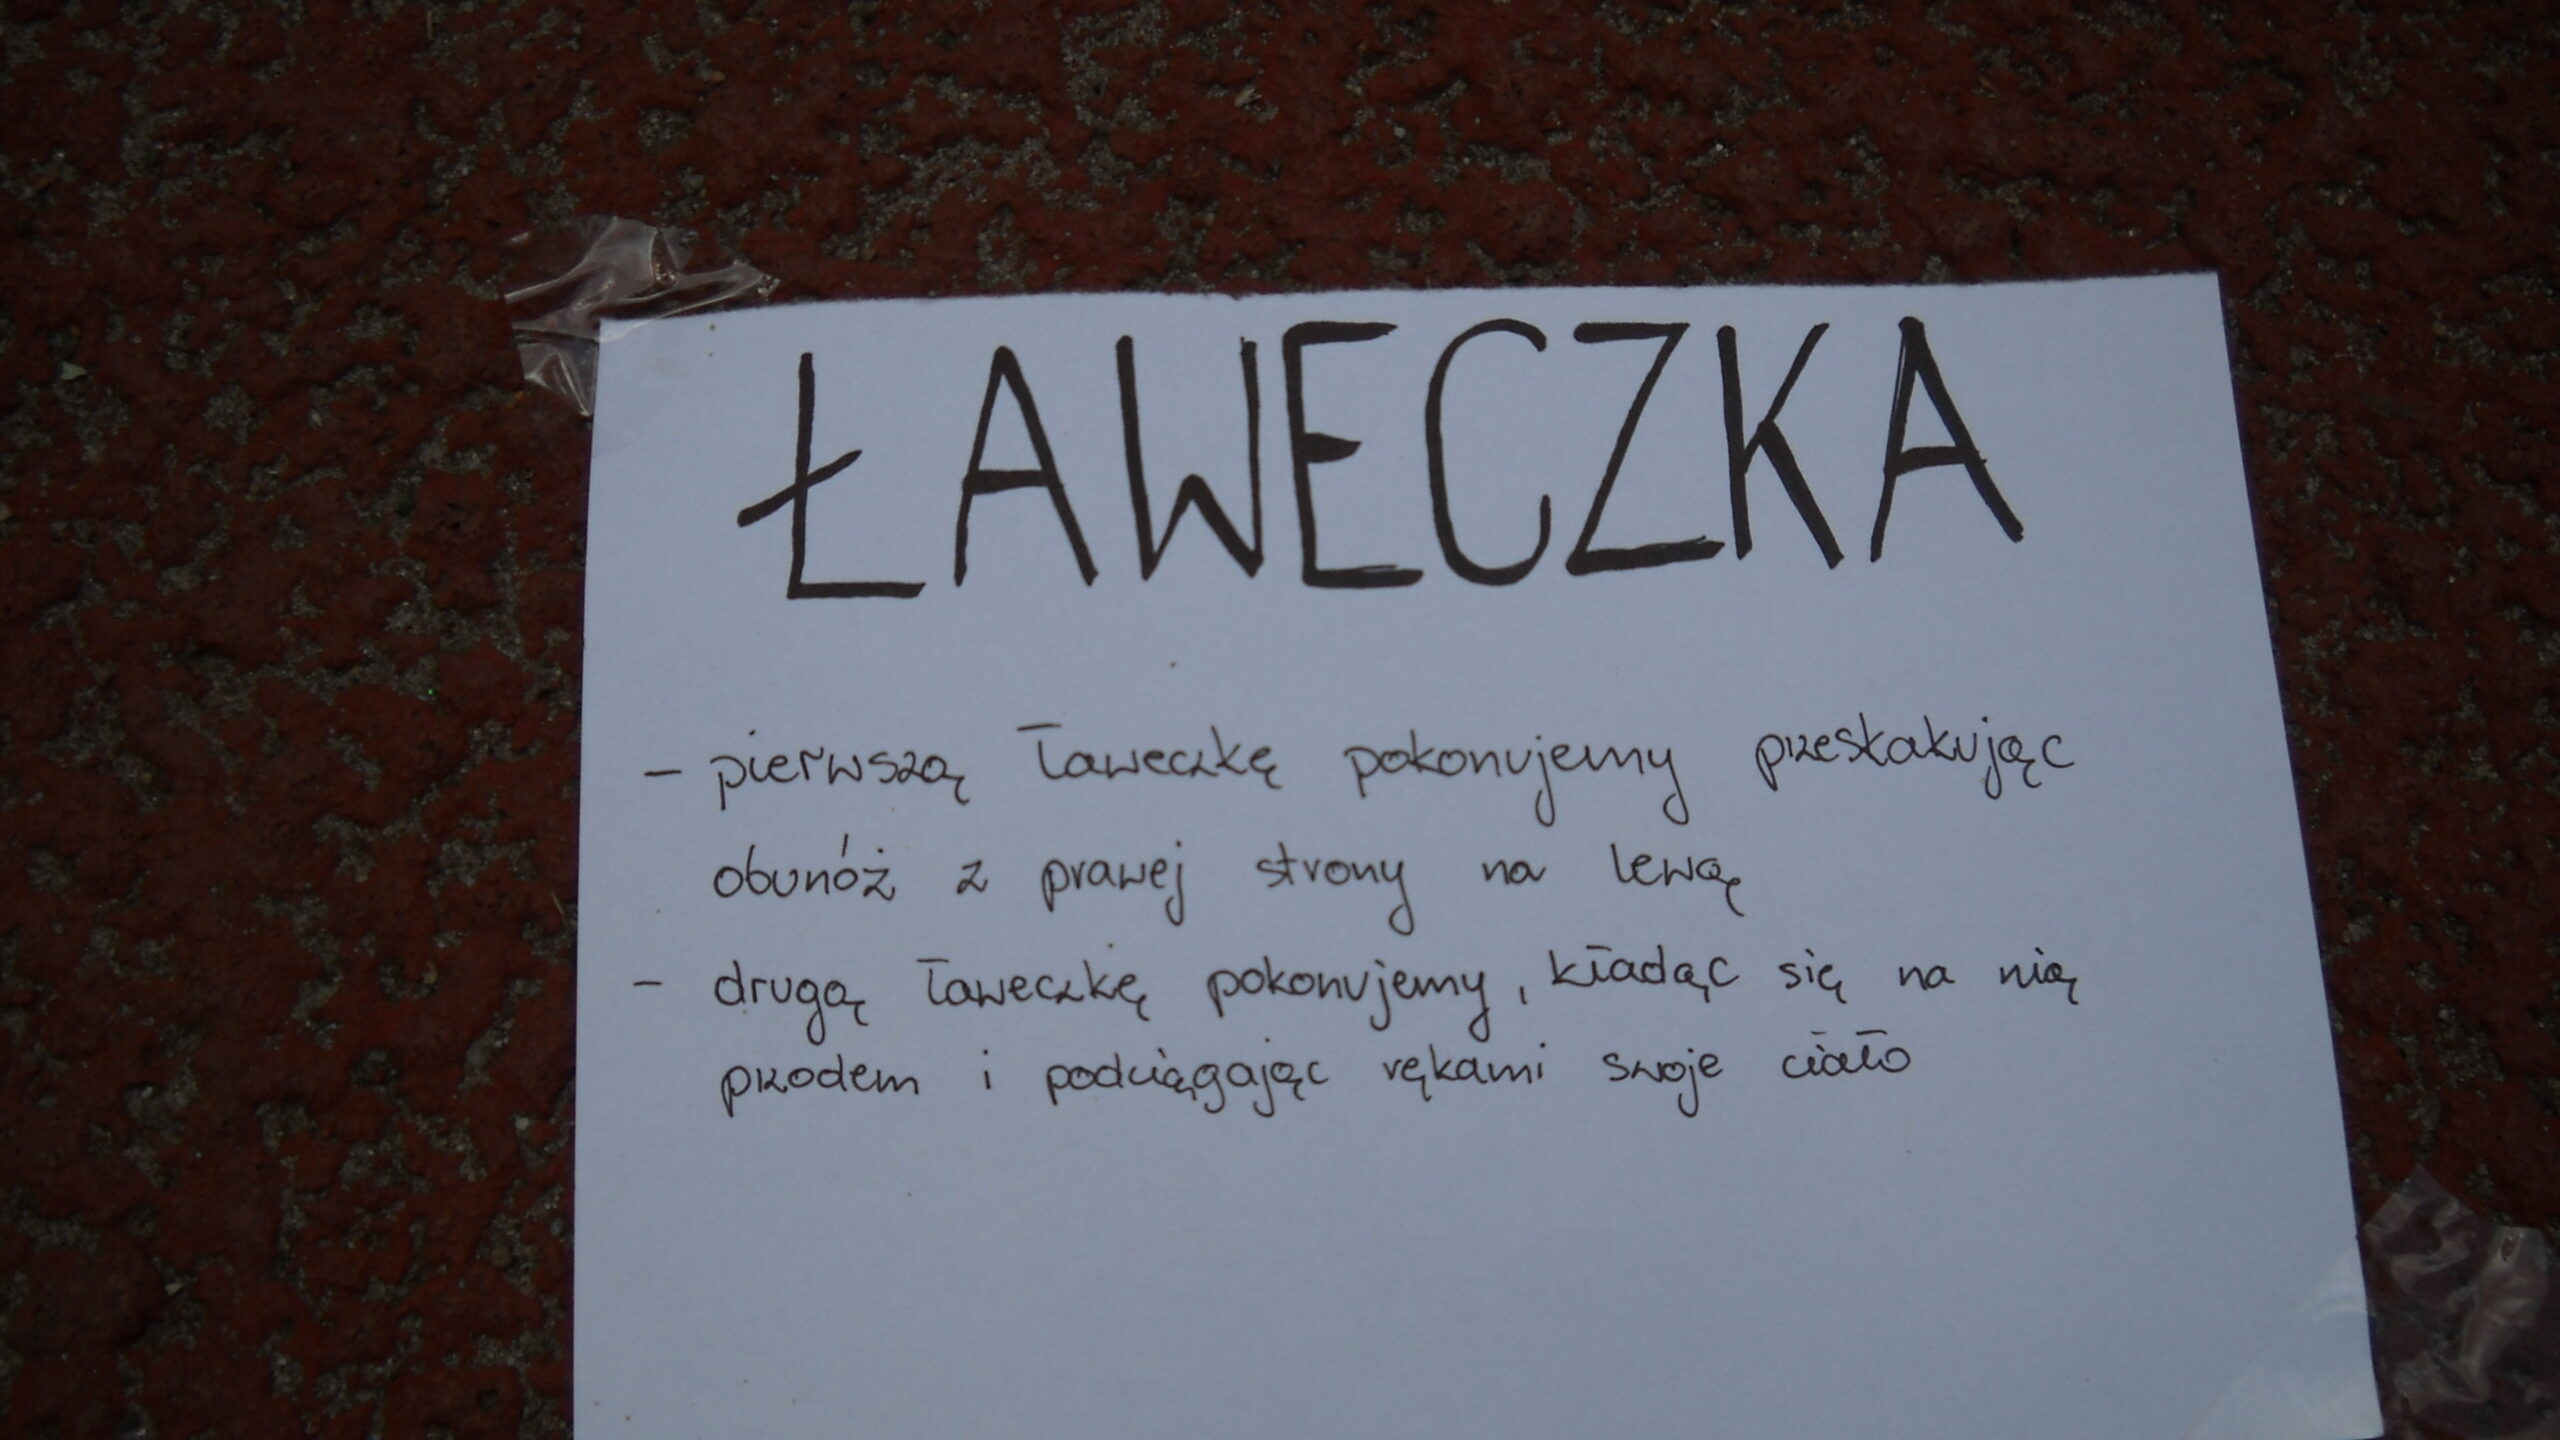 ŁAWECZKA
- pierwszą ławeczkę pokonujemy przeskakując
obunóż z prawej strony na lewą
- drugą ławeczkę pokonujemy, kładąc się na nią
przodem i podciągając rękami swoje ciało